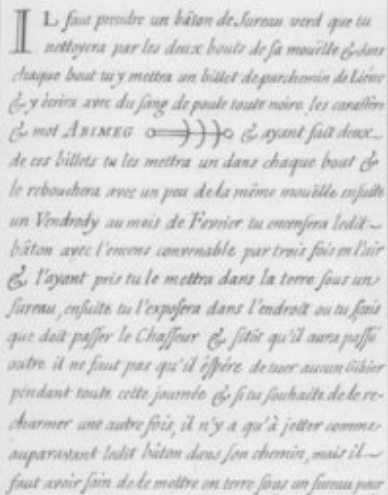 IL faut prendre un bâton de Sureau verd que tu
nettoyera par les deux bouts de sa mouëlle & dans
chaque bout tu y mettra un billet de parchemin de Liévre
& y écrira avec du sang de poule toute noire les caractére
& mot ABIMEG & ayant fait deux
de ces billets tu les mettra un dans chaque bout &
le rebouchera avec un peu de la même mouëlle ensuite
un Vendredy au mois de Fevrier tu encensera ledit
bâton avec l'encens convenable par trois fois en l'air
& l'ayant pris tu le mettra dans la terre sous un
sureau, ensuite tu l'exposera dans l'endroit ou tu sais
que doit passer le Chasseur & sitôt qu'il aura passé
outre il ne faut pas qu'il éspére de tuer aucun Gibier
pendant toute cette journée & si tu souhaite de le re-
charmer une autre fois, il n'y a qu'à jetter comme
auparavant ledit bâton dans son chemin, mais il
faut avoir soin de le mettre en terre sous un sureau pour